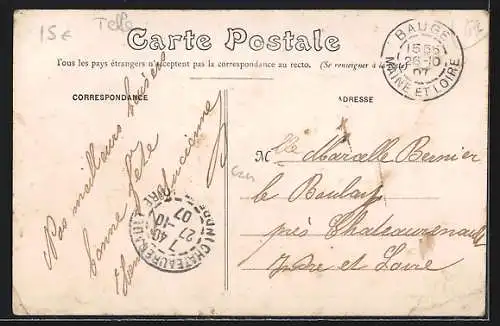 15€
Carte Postale
Tous les pays étrangers n'acceptent pas la correspondance au recto. (Se renseigner à la Poste)
CORRESPONDANCE
ADRESSE
BAUGÉ
15 55
26-10
07
MAINE ET LOIRE
Nos meilleurs baisers
bonne fête
Lucienne
Mlle Marcelle Bernier
le Boulay
près Chateaurenault
Indre et Loire
CHATEAURENAULT
7 40
27-10
07
INDRE ET LOIRE